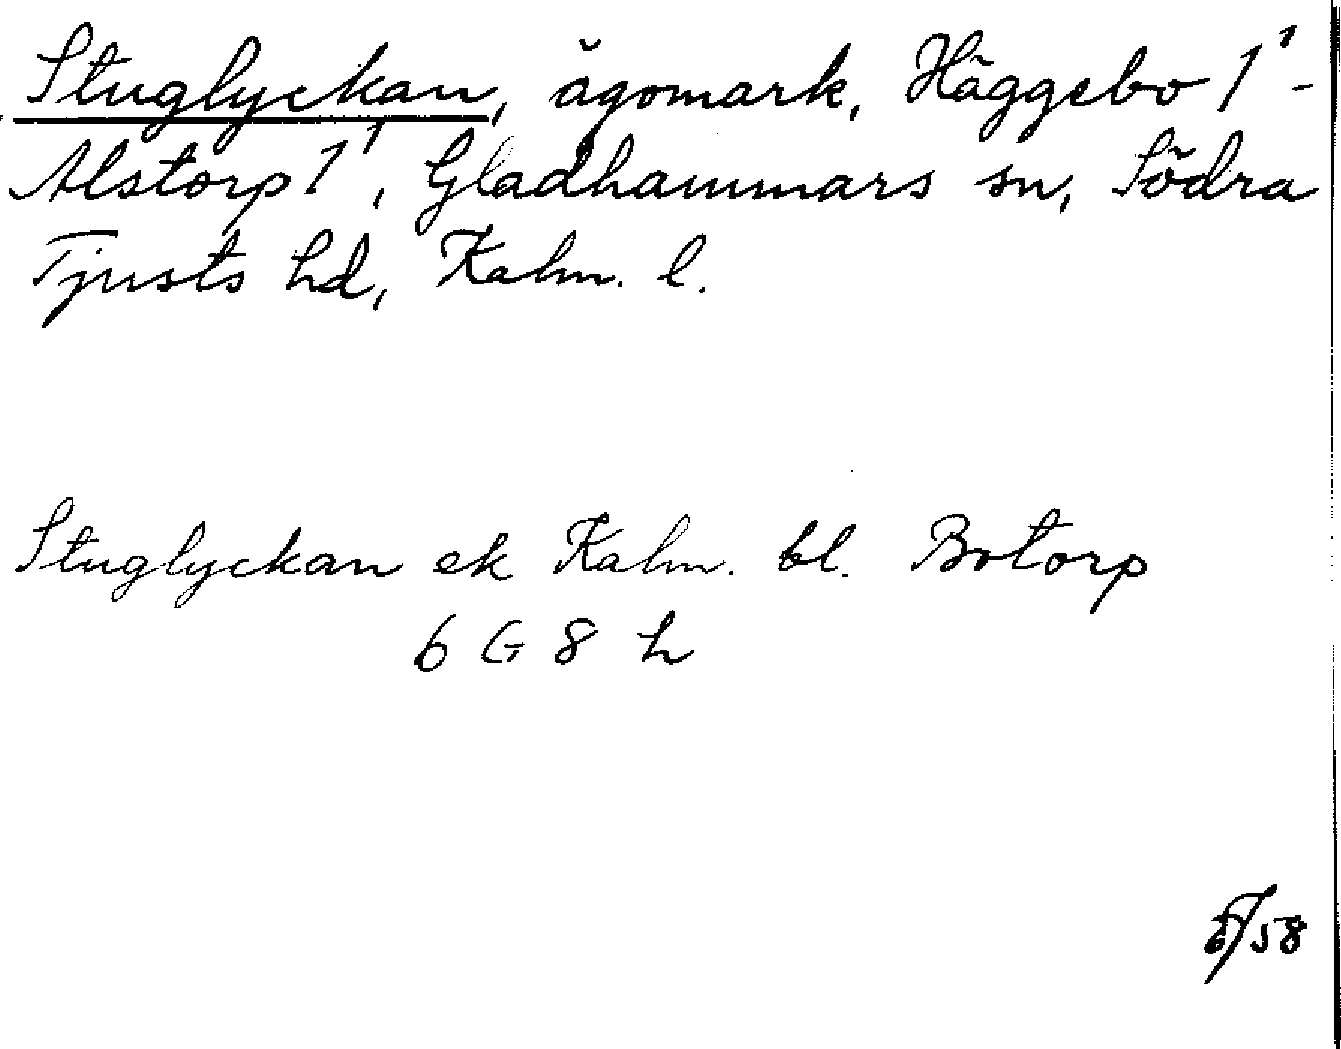 Stuglyckan, ägomark, Häggebo 1¹-
Alstorp 1¹, Gladhammars sn, Södra
Tjusts hd, Kalm. l.
Stuglyckan ek Kalm. bl. Botorp
6 G 8 h